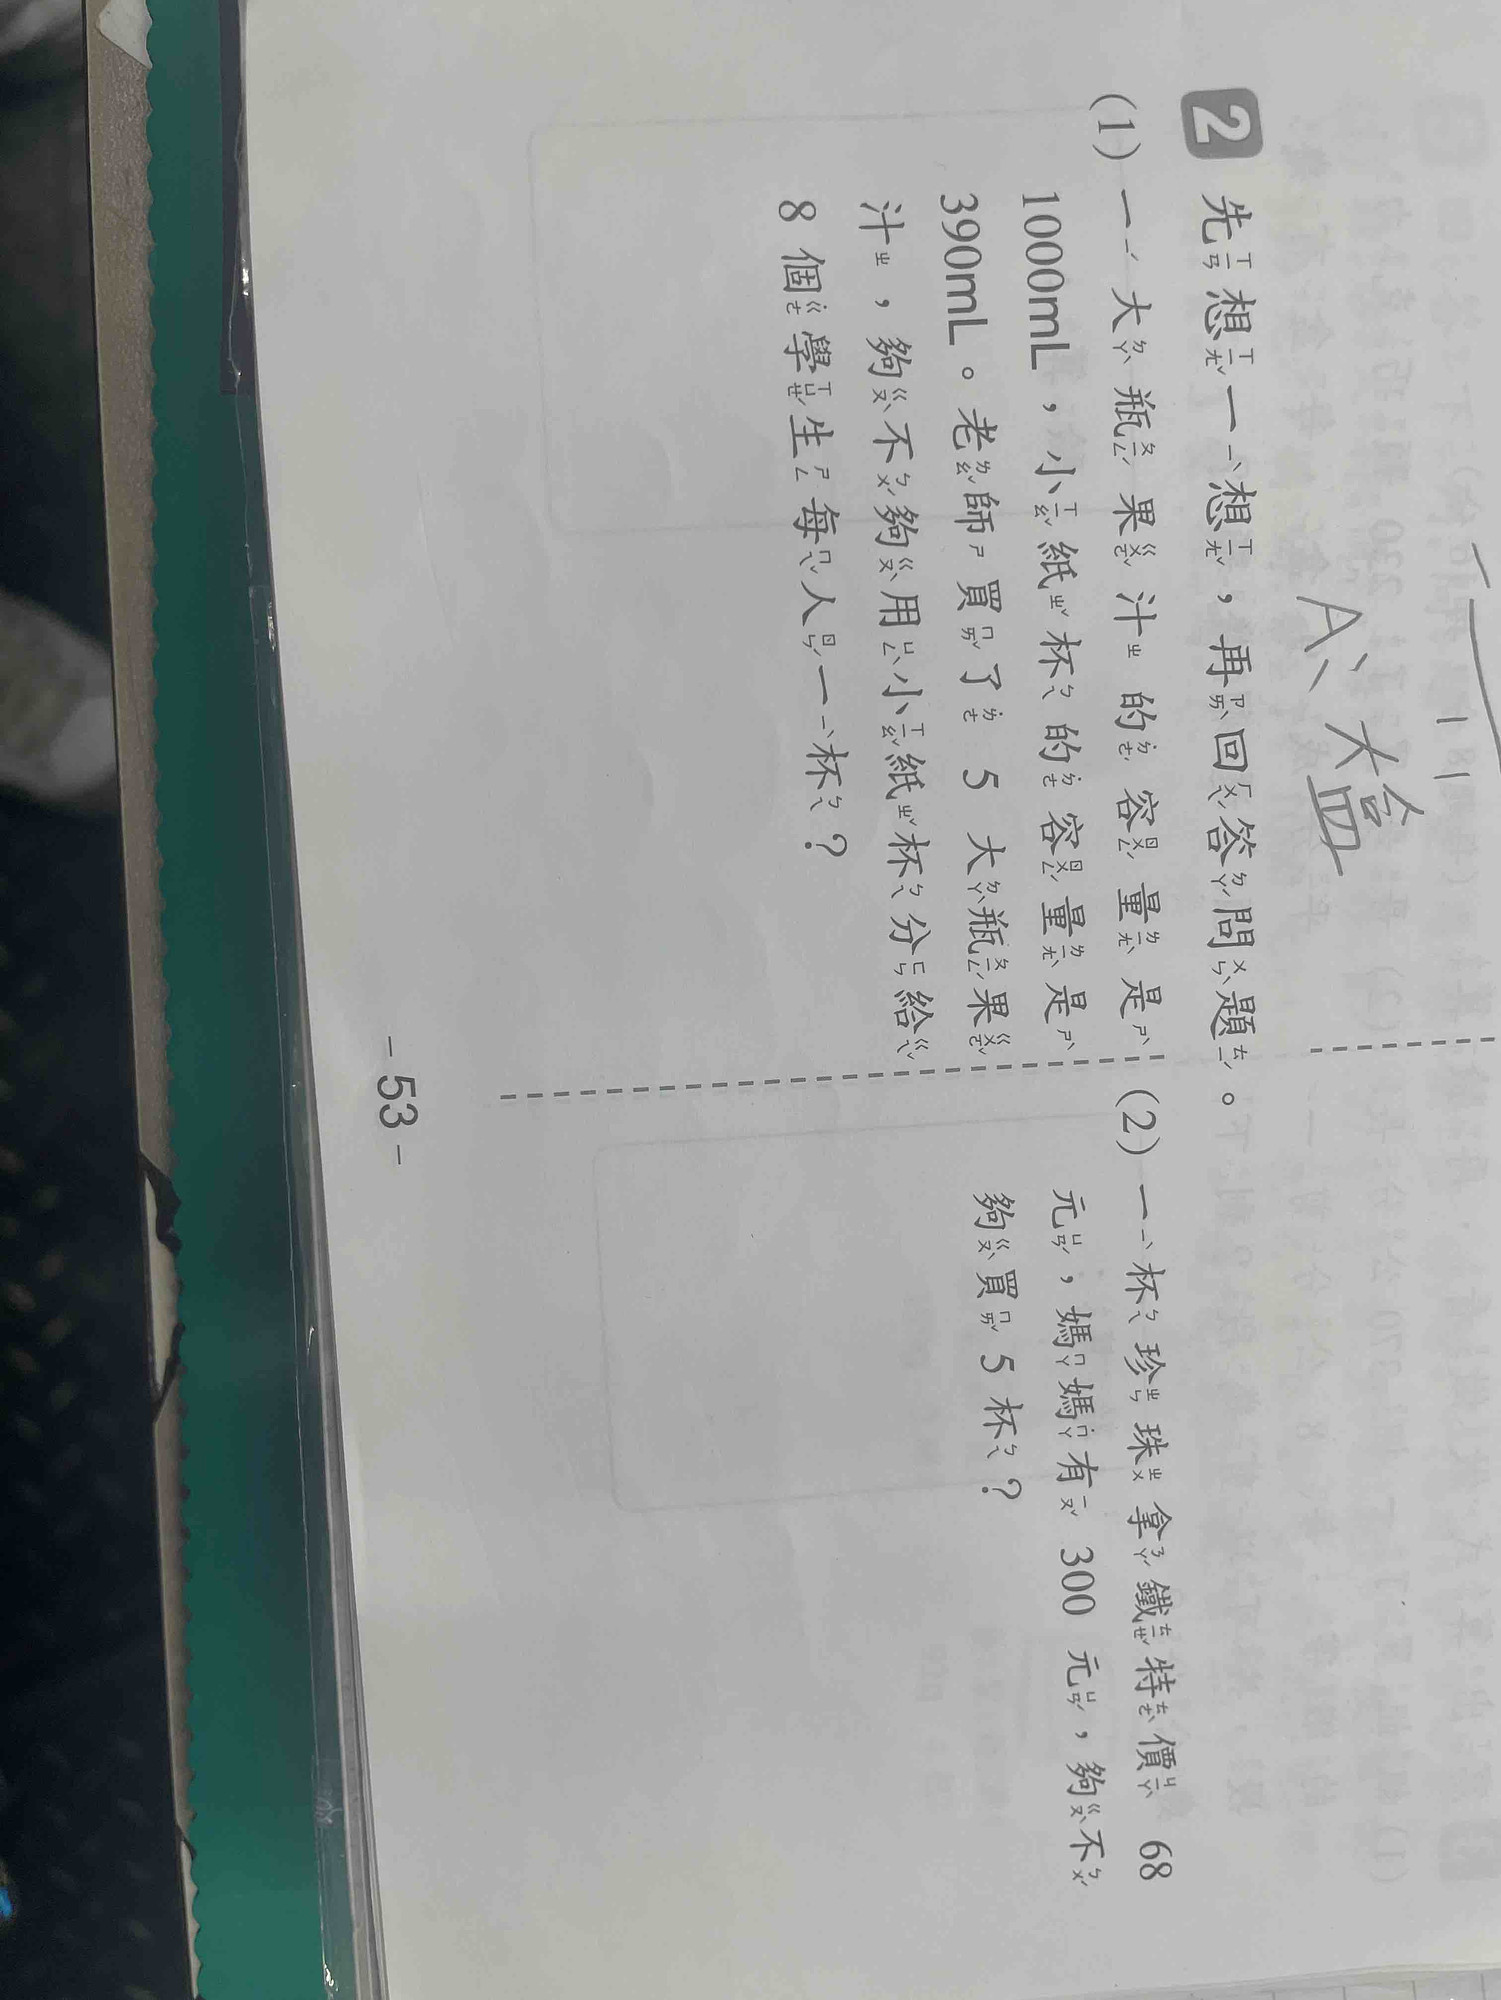 A、大盒
2 先想一想，再回答問題。
(1) 一大瓶果汁的容量是
1000mL，小紙杯的容量是
390mL。老師買了 5 大瓶果
汁，夠不夠用小紙杯分給
8 個學生每人一杯？
(2) 一杯珍珠拿鐵特價 68
元，媽媽有 300 元，夠不
夠買 5 杯？
-53-